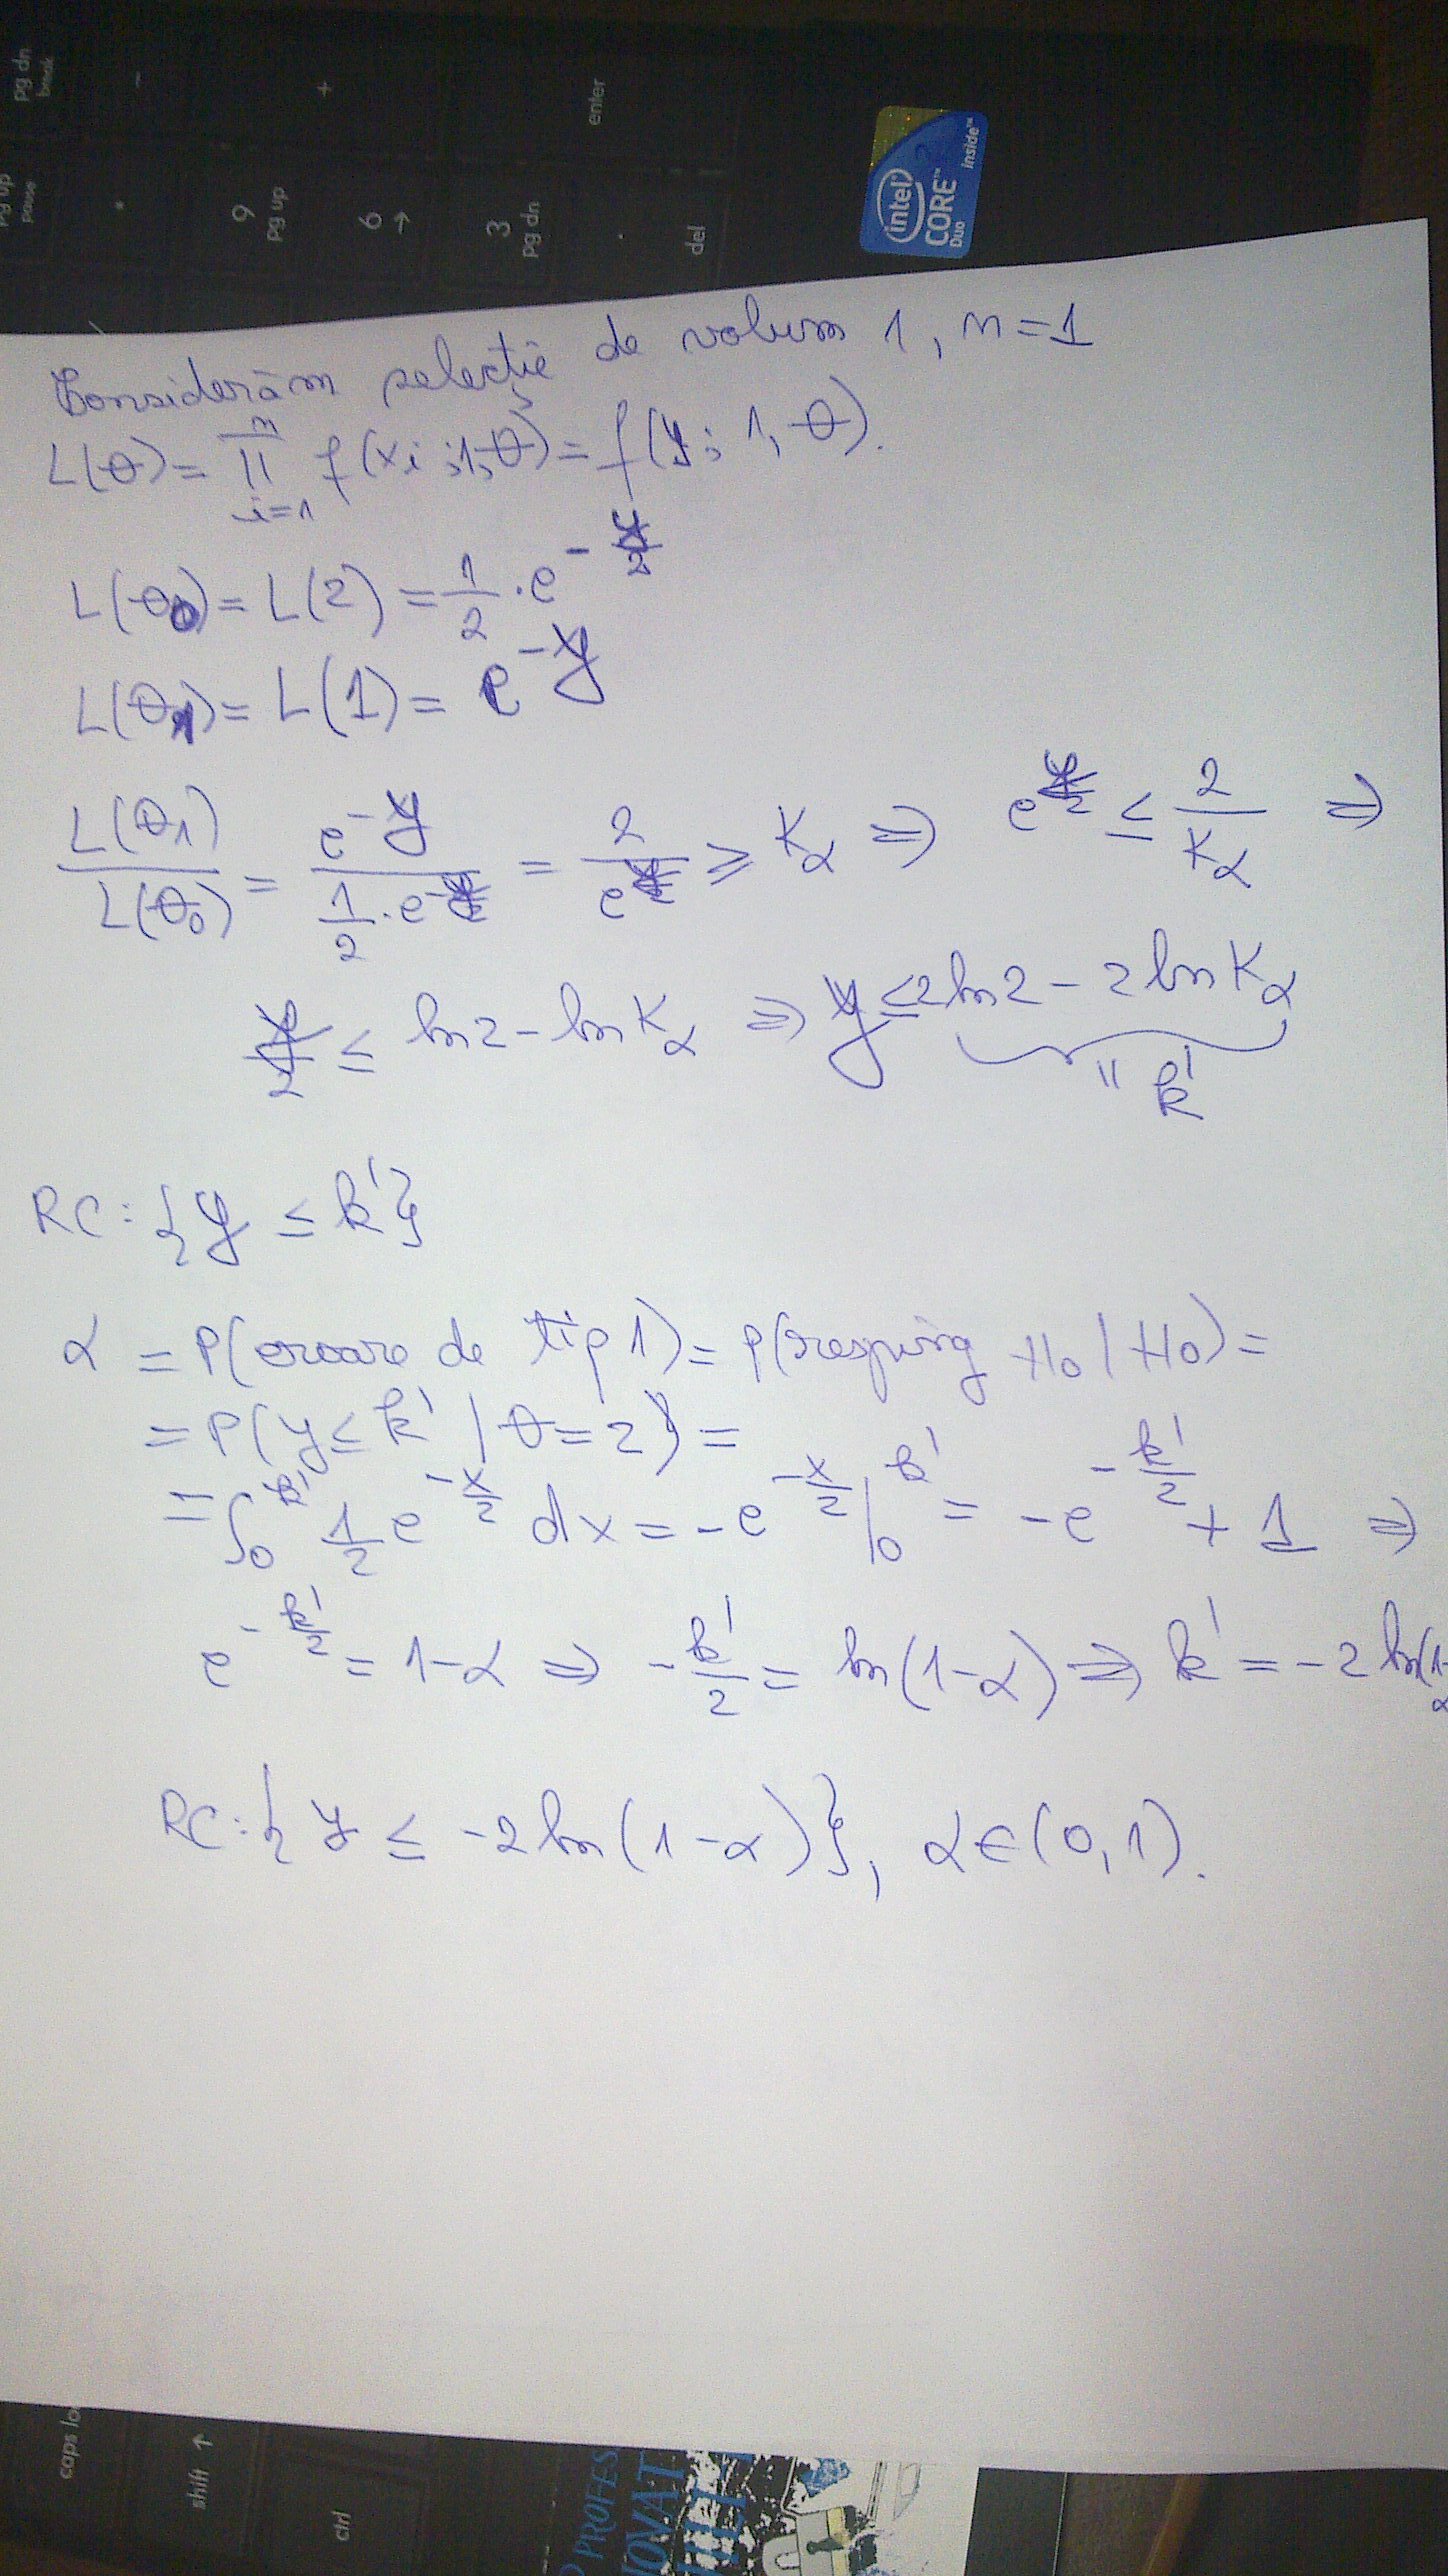 pg dn
break
-
+
enter
pg up
pause
.
9
pg up
6
→
3
pg dn
.
del
intel
CORE™ 2
Duo
inside™
Considerăm selecție de volum 1, n=1
L(θ) = ∏_{i=1}^{n} f(xi; 1, θ) = f(y; 1, θ).
L(θ0) = L(2) = 1/2 · e^{-y/2}
L(θ1) = L(1) = e^{-y}
L(θ1)/L(θ0) = e^{-y} / (1/2 · e^{-y/2}) = 2/e^{y/2} ≥ Kα ⇒ e^{y/2} ≤ 2/Kα ⇒
y/2 ≤ ln2 - ln Kα ⇒ y ≤ 2ln2 - 2ln Kα
" k'
RC: {y ≤ k'}
α = P(eroare de tip 1) = P(resping H0 | H0) =
= P(y ≤ k' | θ = 2) =
= ∫_0^{k'} 1/2 e^{-x/2} dx = -e^{-x/2} |_0^{k'} = -e^{-k'/2} + 1 ⇒
e^{-k'/2} = 1-α ⇒ -k'/2 = ln(1-α) ⇒ k' = -2 ln(1-α
RC: {y ≤ -2ln(1-α)}, α∈(0,1).
caps lo
shift ↑
ctrl
PROFES
NOVAT